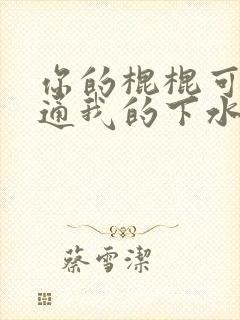 你的棍棍可
通我的下水
蔡雪潔